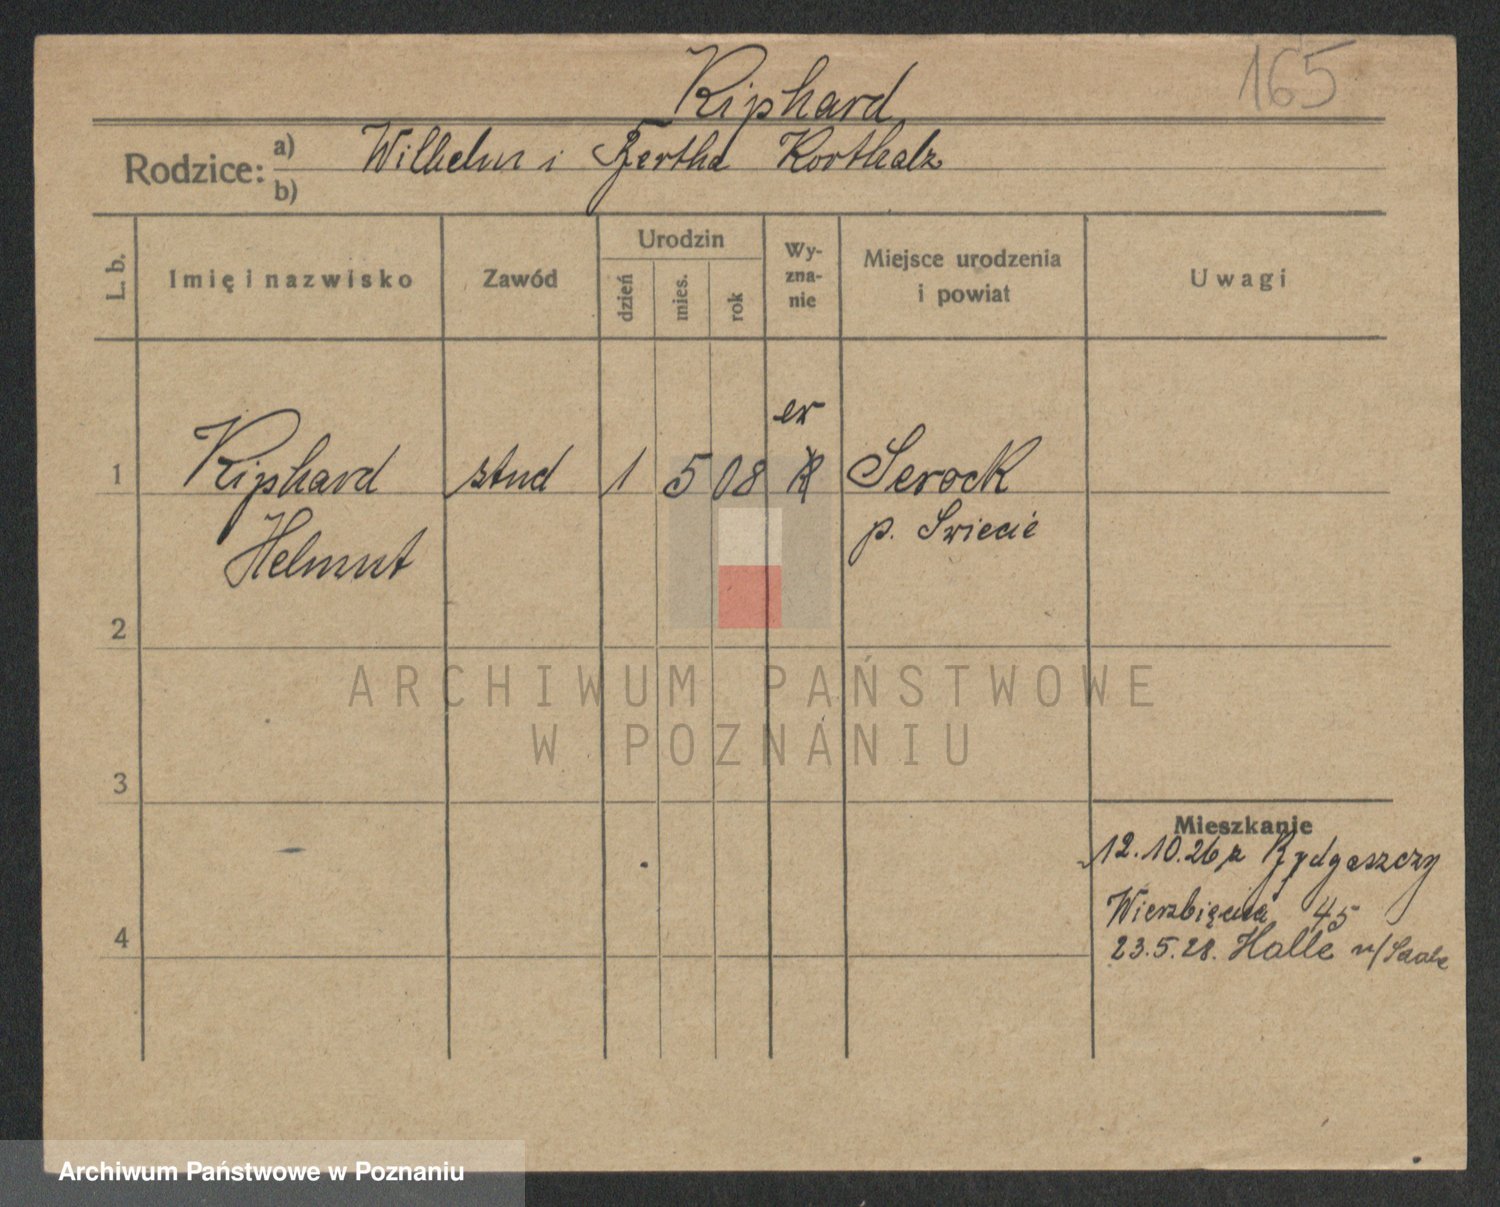 Kiphard
165
Rodzice: a) Wilhelm i Bertha Korthalz
b)
L. b.
Imię i nazwisko
Zawód
Urodzin
dzień
mies.
rok
Wy-
zna-
nie
Miejsce urodzenia
i powiat
Uwagi
ew
1 Kiphard stud 1 5 08 R Serock
Helmut p. Swiecie
2
ARCHIWUM PAŃSTWOWE
W POZNANIU
3
Mieszkanie
12.10.26 z Bydgoszczy
Wierzbięcice 45
4
23.5.28. Halle n/Saale
Archiwum Państwowe w Poznaniu